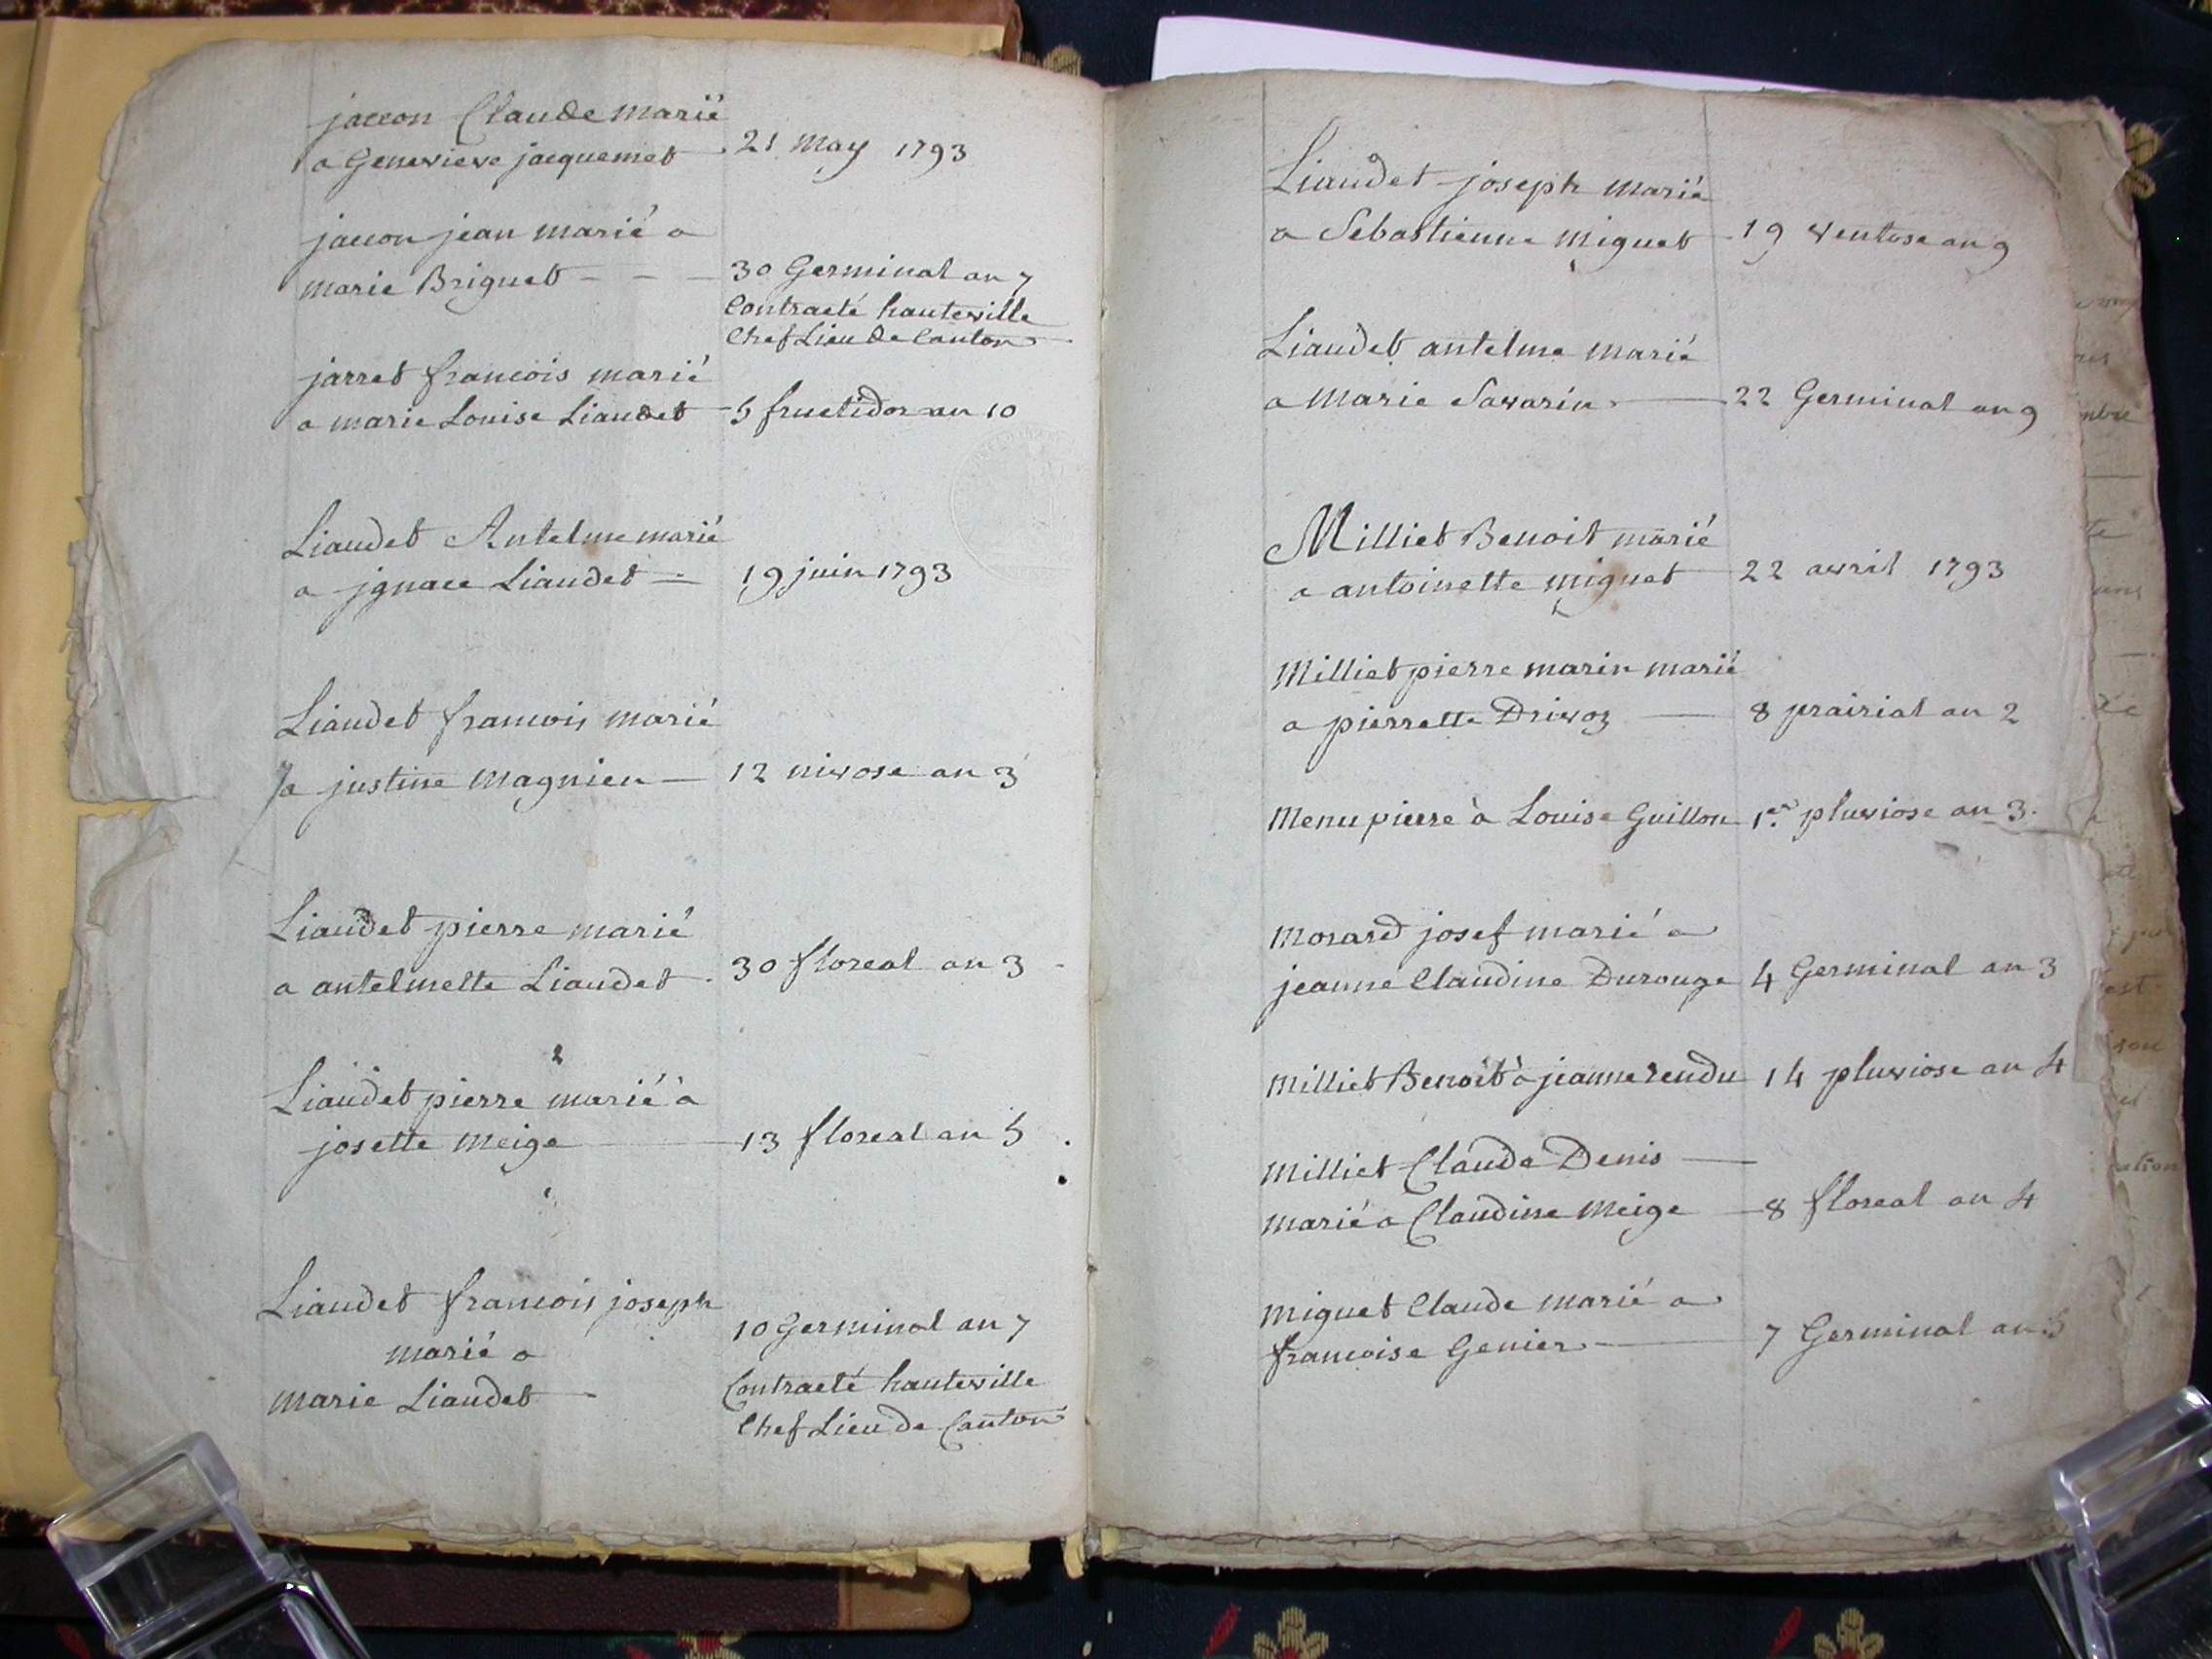 jaccon Claude marié
a Genevieve jacquemet 21 May 1793
jaccon jean marié a
marie Briguet - - - 30 Germinal an 7
Contracté hauteville
Chef Lieu de Canton
jarret francois marié
a marie Louise Liaudet 5 fructidor an 10
Liaudet Antelme marié
a jgnace Liaudet - 19 juin 1793
Liaudet francois marié
a justine Magnien - 12 nivose an 3
Liaudet pierre marié
a antelmette Liaudet 30 floreal an 3
Liaudet pierre marié à
josette Meige 13 floreal an 5
Liaudet francois joseph
marié a
10 Germinal an 7
marie Liaudet -
Contracté hauteville
Chef Lieu de Canton
Liaudet joseph marié
a Sebastienne Miguet 19 Ventose an 9
Liaudet antelme marié
a Marie Savarin 22 Germinal an 9
Milliet Benoit marié
a antoinette Miguet 22 avril 1793
Milliet pierre marin marié
a pierrette Drivoz 8 prairial an 2
Menu pierre à Louise Guillon 1er pluviose an 3.
Morard josef marié a
jeanne Claudine Durouge 4 Germinal an 3
Milliet Benoit à jeanne rendu 14 pluviose an 4
Milliet Claude Denis
marié a Claudine Meige 8 floreal an 4
Miguet Claude marié a
francoise Genier 7 Germinal an 5